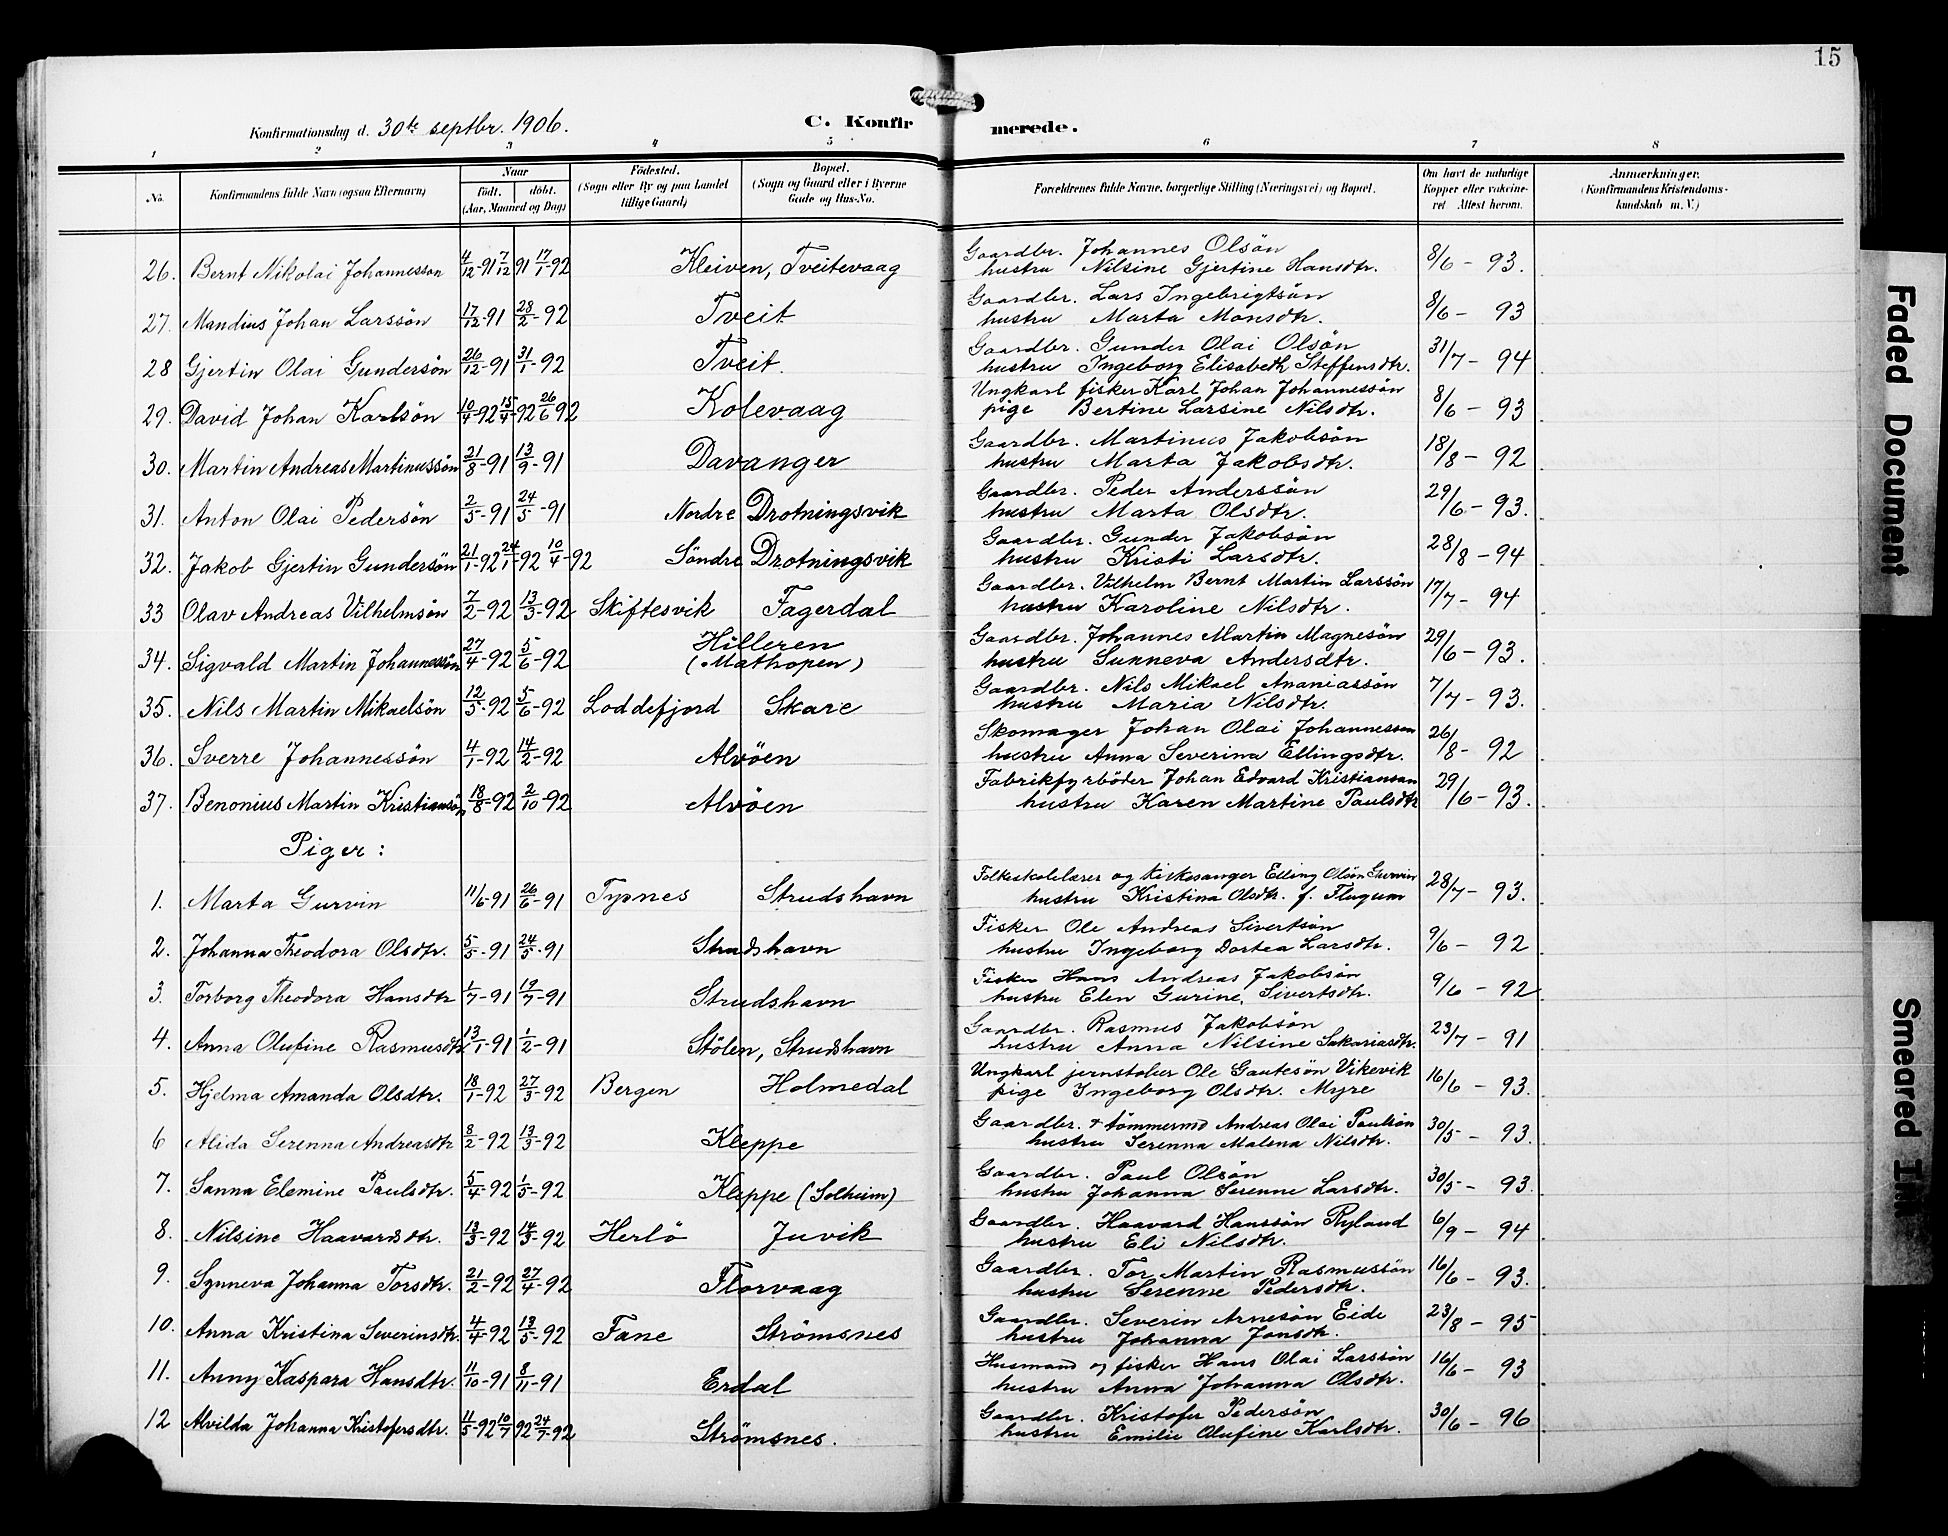 15
Konfirmationsdag d. 30te septbr. 1906. C. Konfirmerede.
1 2 3 4 5 6 7 8
No. Konfirmandens fulde Navn (ogsaa Efternavn) Naar født. døbt. (Aar, Maaned og Dag) Fødested. (Sogn eller By og paa Landet tillige Gaard) Bopæl. (Sogn og Gaard eller i Byerne Gade og Hus-No. Forældrenes fulde Navne, borgerlige Stilling (Næringsvei) og Bopæl. Om havt de naturlige Kopper eller vakcineret Attest herom. Anmerkninger. (Konfirmandens Kristendomskundskab m. V.)
26. Bernt Nikolai Johannesson 4/12-91 7/12 91 17/1-92 Kleiven, Tveitevaag Gaardbr. Johannes Olsön 8/6 - 93.
hustru Nilsine Gjertine Hansdtr.
27. Mandius Johan Larssön 17/12-91 28/2-92 Tveit Gaardbr. Lars Ingebrigtsön 8/6 - 93
hustru Marta Monsdtr.
28 Gjertin Olai Gundersön 26/12-91 31/1-92 Tveit. Gaardbr. Gunder Olai Olsön 31/7 - 94
hustru Ingeborg Elisabeth Steffensdtr.
29. David Johan Karlsön 10/4-92 15/4-92 26/6 92 Kolevaag Ungkarl fisker Karl Johan Johannessön 8/6 - 93
pige Bertine Larsine Nilsdtr.
30. Martin Andreas Martinussön 21/8-91 13/9-91 Davanger Gaardbr. Martinus Jakobsön 18/8 - 92
hustru Marta Jakobsdtr.
31. Anton Olai Pedersön 2/5-91 24/5-91 Nordre Drotningsvik Gaardbr. Peder Anderssön 29/6 - 93.
hustru Marta Olsdtr.
32. Jakob Gjertin Gundersön 21/1-92 24/1-92 10/4-92 Söndre Drotningsvik Gaardbr. Gunder Jakobsön 28/8 - 94
hustru Kristi Larsdtr.
33 Olav Andreas Vilhelmsön 7/2-92 13/3-92 Skiftesvik Fagerdal Gaardbr. Vilhelm Bernt Martin Larssön 17/7 - 94
hustru Karoline Nilsdtr.
34. Sigvald Martin Johannessön 27/4-92 5/6-92 Hilleren (Mathopen) Gaardbr. Johannes Martin Magnesön 29/6 - 93.
hustru Sunneva Andersdtr.
35. Nils Martin Mikaelsön 12/5-92 5/6-92 Loddefjord Skare Gaardbr. Nils Mikael Ananiassön 7/7 - 93.
hustru Maria Nilsdtr.
36. Sverre Johannessön 4/1-92 14/2-92 Alvöen Skomager Johan Olai Johannesson 26/8 - 92
hustru Anna Severina Ellingsdtr.
37. Benonius Martin Kristiansön 18/8-92 2/10-92 Alvöen Fabrikfyrböder Johan Edvard Kristiansan 29/6 - 93.
hustru Karen Martine Paulsdtr
Piger:
1. Marta Gurvin 11/6-91 26/6-91 Tysnes Strudshavn Folkeskolelærer og kirkesanger Elling Olsön Gurvin 28/7 - 93.
hustru Kristina Olsdtr. f. Flugum
2. Johanna Theodora Olsdtr. 5/5-91 24/5-91 Strudshavn Fisker Ole Andreas Sivertsön 9/6 - 92
hustru Ingeborg Dortea Larsdtr.
3. Torborg Theodora Hansdtr 1/7-91 19/7-91 Strudshavn Fisker Hans Andreas Jakobsön 9/6 - 92
hustru Elen Gurine, Sivertsdtr.
4. Anna Olufine Rasmusdtr 13/1-91 1/2-91 Stölen, Strudshavn Gaardbr. Rasmus Jakobsön 23/7 - 91
hustru Anna Nilsine Sakariasdtr.
5. Hjelma Amanda Olsdtr. 18/1-92 27/3-92 Bergen Holmedal Ungkarl jernstøber Ole Gautesön Vikevik 16/6 - 93.
pige Ingeborg Olsdtr. Myre
6 Alida Serenna Andreasdtr 8/2-92 13/3-92 Kleppe Gaardbr. & tömmermd Andreas Olai Paulsön 30/5 - 93.
hustru Serenna Malena Nilsdtr.
7. Sanna Elemine Paulsdtr. 5/4-92 1/5-92 Kleppe (Solheim) Gaardbr. Paul Olsön 30/5 - 93.
hustru Johanna Serenne Larsdtr.
8. Nilsine Haavardsdtr. 13/3-92 14/5-92 Herlö Juvik Gaardbr. Haavard Hanssön Ryland 6/9 - 94
hustru Eli Nilsdtr.
9. Synneva Johanna Torsdtr. 21/2-92 27/4-92 Florvaag Gaardbr. Tor Martin Rasmussön 16/6 - 93.
hustru Serenne Pedersdtr.
10. Anna Kristina Severinsdtr. 4/4-92 13/5-92 Fane Strömsnes Gaardbr. Severin Arnesön Eide 23/8 - 95
hustru Johanna Jonsdtr.
11. Anny Kaspara Hansdtr. 11/10-91 8/11-91 Erdal Husmand og fisker Hans Olai Larssön 16/6 - 93
hustru Anna Johanna Olsdtr.
12 Alvilda Johanna Kristofersdtr. 11/5-92 10/7 92 24/7-92 Strömsnes. Gaardbr. Kristofer Pedersön 30/6 - 96
hustru Emilie Olufine Karlsdtr.
Faded Document
Smeared Ink